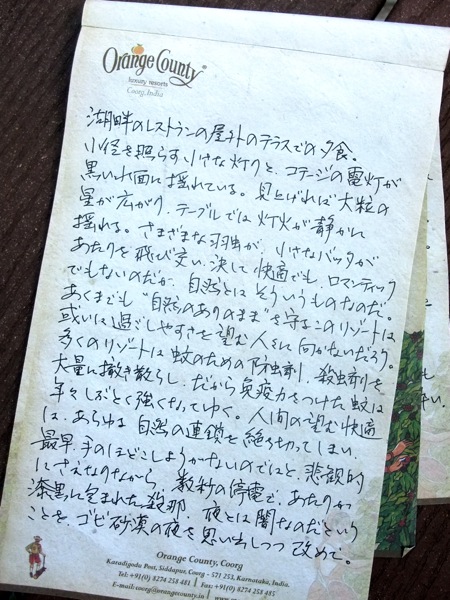 Orange County
luxury resorts
Coorg, India
湖畔のレストランの屋外のテラスでの夕食。
小径を照らす小さな灯りと、コテージの電灯が
黒い水面に揺れている。見上げれば大粒の
星が広がり、テーブルでは灯火が静かに
揺れる。さまざまな羽虫が、小さなバッタが
あたりを飛び交い、決して快適でも、ロマンティック
でもないのだが、自然とはそういうものなのだ。
あくまでも“自然のありのまま”を守るこのリゾートは
或いは過ごしやすさを望む人々に向かないだろう。
多くのリゾートは蚊のための防虫剤、殺虫剤を
大量に撒き散らし、だから免疫力をつけた蚊は
年々しぶとく強くなってゆく。人間の望む快適
は、あらゆる自然の連鎖を絶ち切ってしまい、
最早、手のほどこしようがないのでは、と、悲観的
にさえなりながら、数秒の停電で、あたりが
漆黒に包まれた刹那、夜とは闇なのだという
ことを、ゴビ砂漠の夜を思い出しつつ改めて。
Orange County, Coorg
Karadigodu Post, Siddapur, Coorg - 571 253, Karnataka, India.
Tel: +91(0) 8274 258 481 Fax: +91(0) 8274 258 485
E-mail: coorg@orangecounty.in